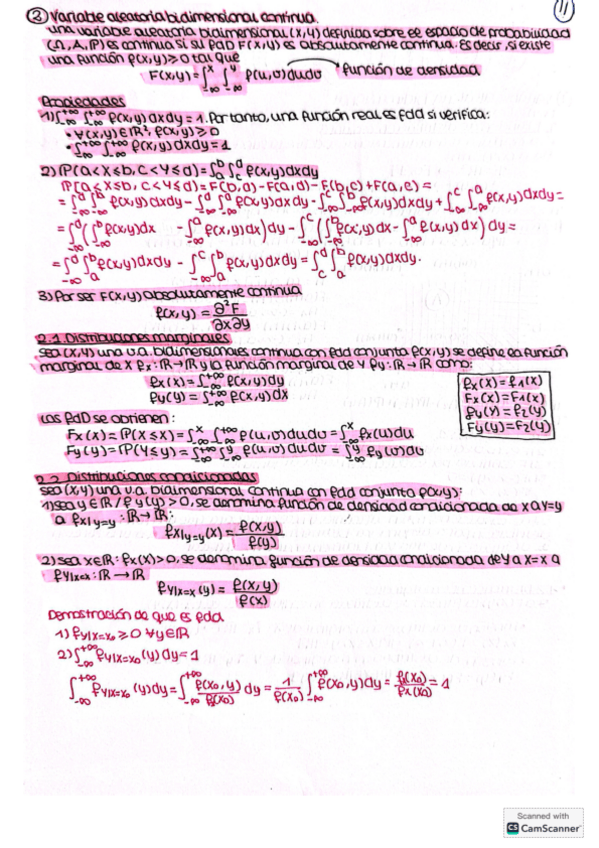 ② Variable aleatoria bidimensional continua.
11
una variable aleatoria bidimensional (X,Y) definida sobre el espacio de probabilidad
(Ω,A,P) es continua si su FdD F(x,y) es absolutamente continua. Es decir, si existe
una función f(x,y)≥0 tal que
F(x,y)=∫_{-∞}^{x}∫_{-∞}^{y} f(u,v)dudv función de densidad
Propiedades
1)∫_{-∞}^{+∞}∫_{-∞}^{+∞} f(x,y)dxdy=1. Por tanto, una función real es fdd si verifica:
• ∀(x,y)∈ℝ², f(x,y)≥0
• ∫_{-∞}^{+∞}∫_{-∞}^{+∞} f(x,y)dxdy=1
2) P(a<X≤b, c<Y≤d)=∫_{c}^{d}∫_{a}^{b} f(x,y)dxdy
P(a<X≤b, c<Y≤d)=F(b,d)-F(a,d)-F(b,c)+F(a,c)=
=∫_{-∞}^{d}∫_{-∞}^{b} f(x,y)dxdy-∫_{-∞}^{d}∫_{-∞}^{a} f(x,y)dxdy-∫_{-∞}^{c}∫_{-∞}^{b} f(x,y)dxdy+∫_{-∞}^{c}∫_{-∞}^{a} f(x,y)dxdy=
=∫_{-∞}^{d}(∫_{-∞}^{b} f(x,y)dx -∫_{-∞}^{a} f(x,y)dx)dy-∫_{-∞}^{c}(∫_{-∞}^{b} f(x,y)dx-∫_{-∞}^{a} f(x,y)dx)dy=
=∫_{-∞}^{d}∫_{a}^{b} f(x,y)dxdy - ∫_{-∞}^{c}∫_{a}^{b} f(x,y)dxdy=∫_{c}^{d}∫_{a}^{b} f(x,y)dxdy.
3) Por ser F(x,y) absolutamente continua
f(x,y)=∂²F/∂x∂y
2.1. Distribuciones marginales
Sea (X,Y) una v.a. bidimensionales continua con fdd conjunta f(x,y) se define la función
marginal de X fx:ℝ→ℝ y la función marginal de Y fy:ℝ→ℝ como:
fx(x)=∫_{-∞}^{+∞} f(x,y)dy
fy(y)=∫_{-∞}^{+∞} f(x,y)dx
fx(x)=f1(x)
Fx(x)=F1(x)
fy(y)=f2(y)
Fy(y)=F2(y)
Las FdD se obtienen:
Fx(x)=P(X≤x)=∫_{-∞}^{x}∫_{-∞}^{+∞} f(u,v)dudv=∫_{-∞}^{x} fx(u)du
Fy(y)=P(Y≤y)=∫_{-∞}^{+∞}∫_{-∞}^{y} f(u,v)dudv=∫_{-∞}^{y} fy(v)dv
2.2. Distribuciones condicionadas
Sea (X,Y) una v.a. bidimensional continua con fdd conjunta f(x,y):
1) sea y∈ℝ/fy(y)>0, se denomina función de densidad condicionada de X a Y=y
a fX|Y=y:ℝ→ℝ:
fX|Y=y(x)=f(x,y)/f(y)
2) Sea x∈ℝ:fx(x)>0, se denomina función de densidad condicionada de Y a X=x a
fY|X=x:ℝ→ℝ
fY|X=x(y)=f(x,y)/f(x)
Demostración de que es fdd
1) fY|X=x₀≥0 ∀y∈ℝ
2)∫_{-∞}^{+∞} fY|X=x₀(y)dy=1
∫_{-∞}^{+∞} fY|X=x₀(y)dy=∫_{-∞}^{+∞} f(x₀,y)/fx(x₀) dy=1/f(x₀)∫_{-∞}^{+∞} f(x₀,y)dy=fx(x₀)/fx(x₀)=1
Scanned with
CS CamScanner